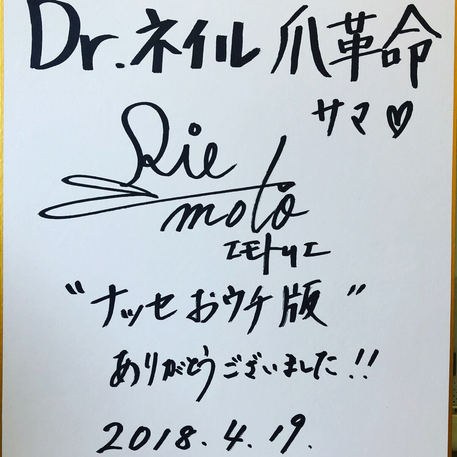 Dr.ネイル 爪革命
サマ♡
Rie
moto
エモトリエ
"ナッセおウチ版"
ありがとうございました!!
2018.4.19.